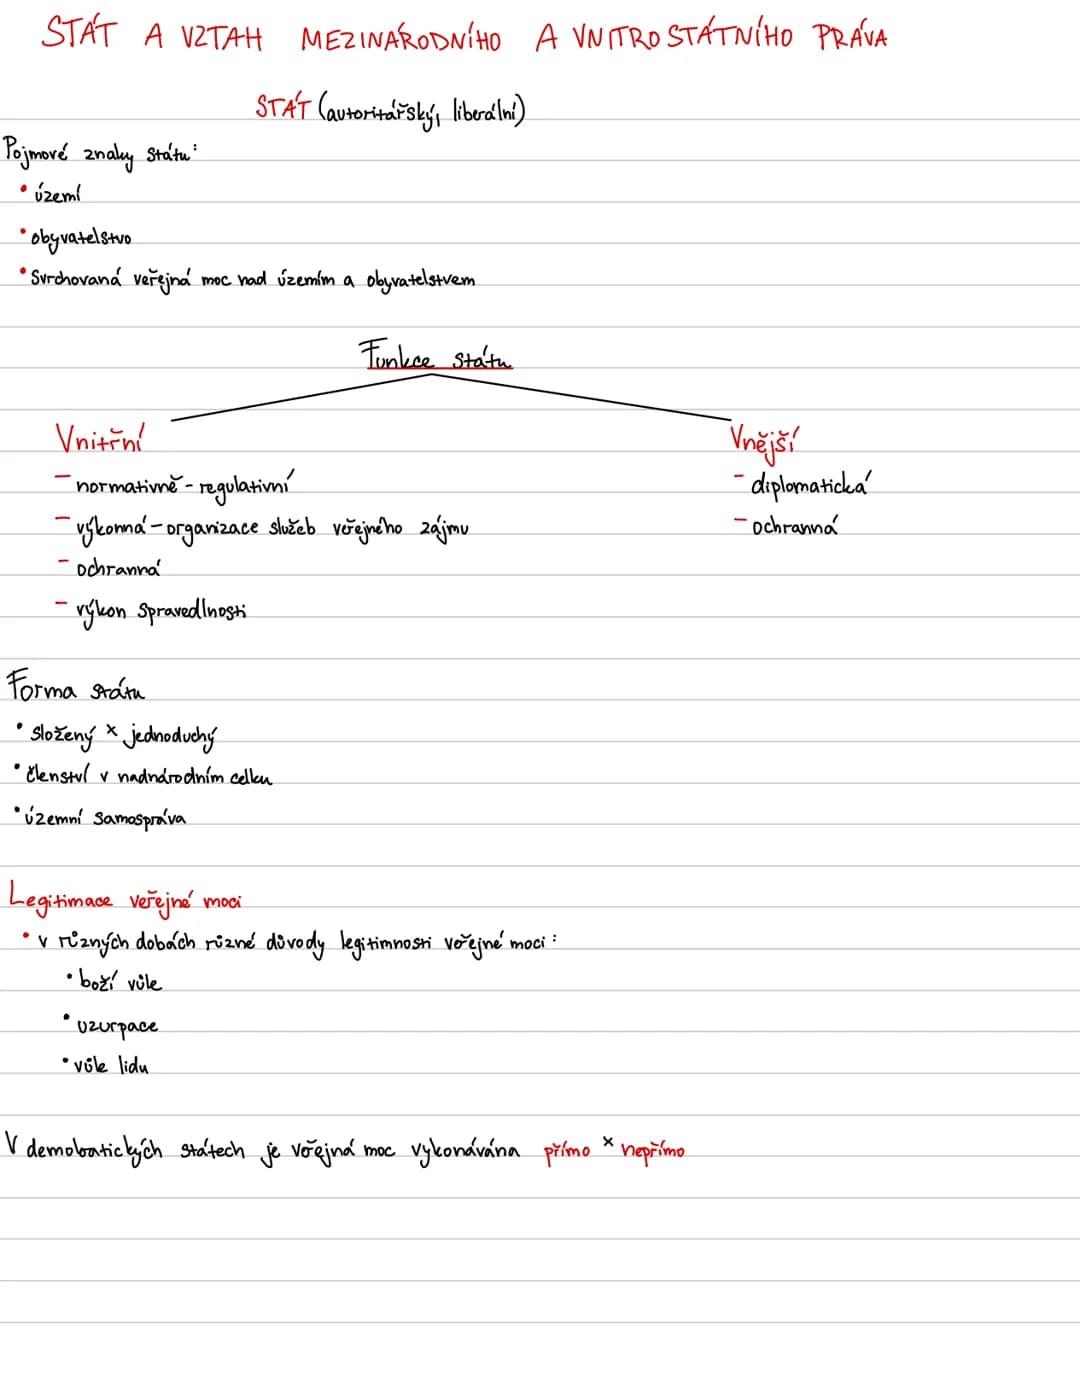 STÁT A VZTAH MEZINÁRODNÍHO A VNITROSTÁTNÍHO PRÁVA
STÁT (autoritářský, liberální)
Pojmové znaky státu:
• území
• obyvatelstvo
• Svrchovaná veřejná moc nad územím a obyvatelstvem
Funkce státu
Vnitřní
- normativně - regulativní
- výkonná - organizace služeb veřejného zájmu
- ochranná
- výkon spravedlnosti
Vnější
- diplomatická
- ochranná
Forma státu
• složený × jednoduchý
• členství v nadnárodním celku
• územní samospráva
Legitimace veřejné moci
• v různých dobách různé důvody legitimnosti veřejné moci:
• boží vůle
• uzurpace
• vůle lidu
V demokratických státech je veřejná moc vykonávána přímo × nepřímo